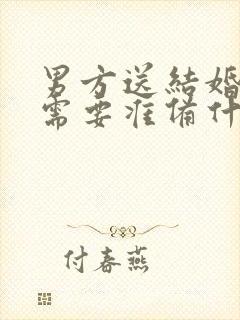 男方送結婚
需要准備什
付春燕